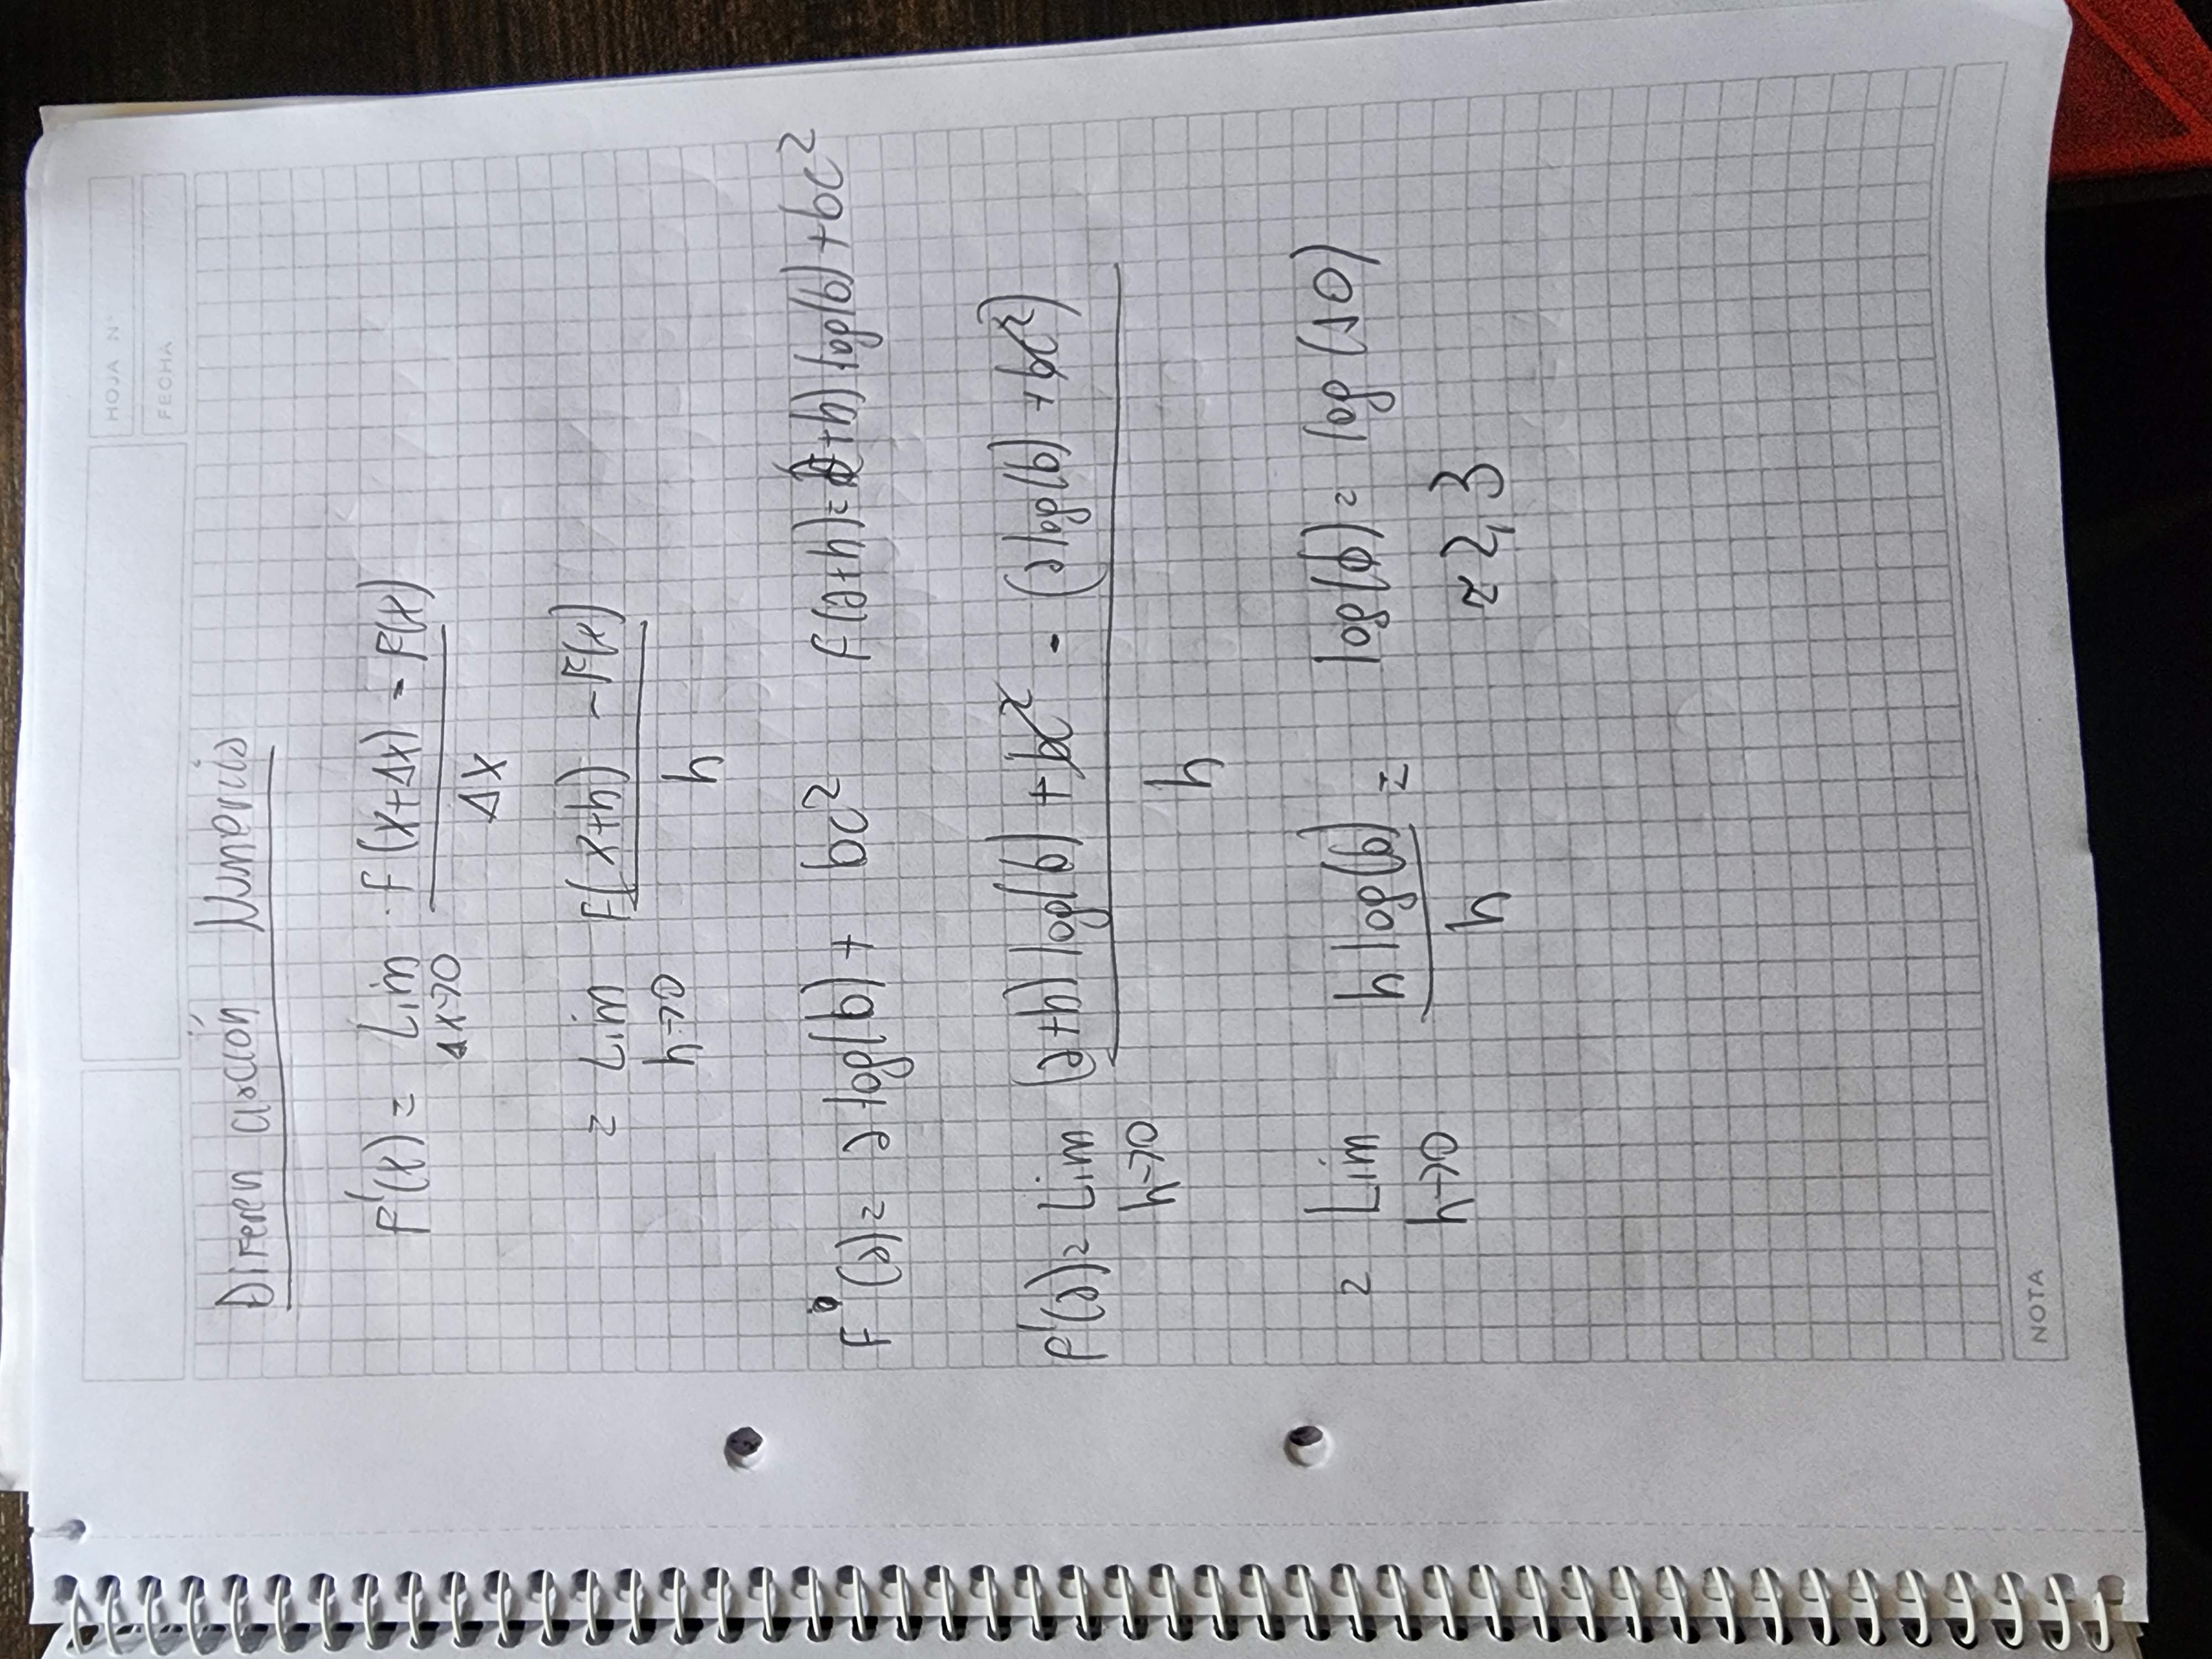 HOJA N°
FECHA
Diferenciación Numerica
F'(x) = Lim F(x+Δx) - F(x)
Δx→0 Δx
= Lim F(x+h) - F(x)
h→0 h
F (a) = a log(b) + bc² F(a+h) = (a+h) log(b) + bc²
F'(a) = Lim (a+h) log(b) + bc² - (a log(b) + bc²)
h→0 h
= Lim h log(b) = log(b) = log(10)
h→0 h ≈ 2,3
NOTA